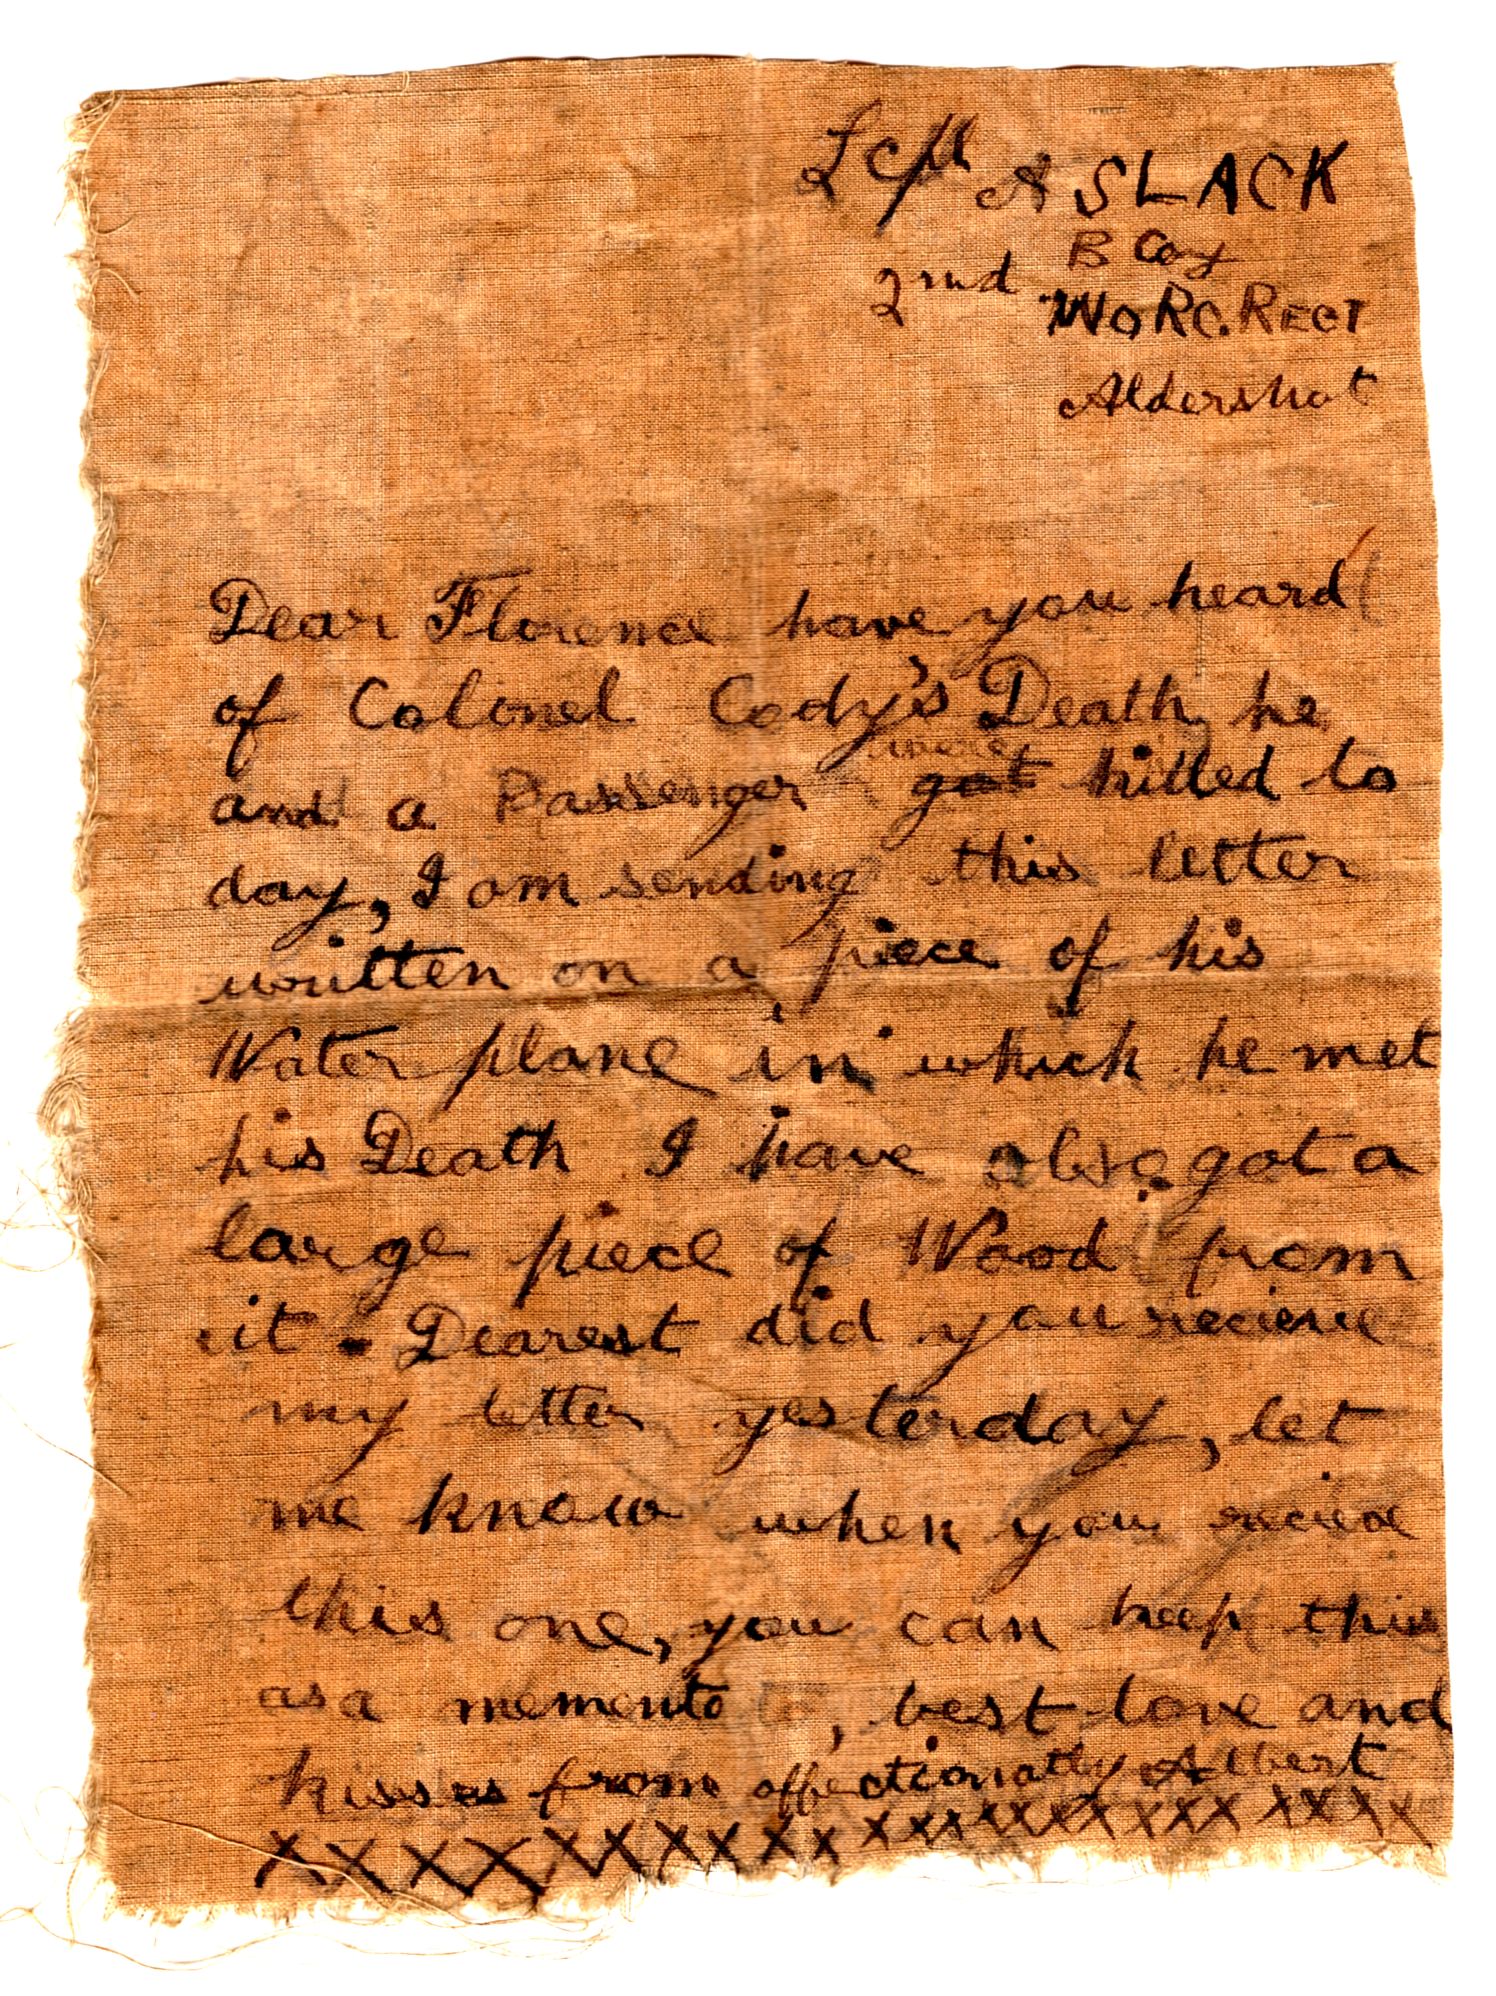 L cpl A SLACK
B Coy
2nd WORC. REGT
Aldershot
Dear Florence have you heard
of Colonel Cody's Death, he
and a Passenger were got killed to
day, I am sending this letter
written on a piece of his
Water plane in which he met
his Death I have also got a
large piece of Wood from
it. Dearest did you recieve
my letter yesterday, let
me know when you recieve
this one, you can keep this
as a memento, best love and
kisses from affectionatly Albert
xxxxxxxxxxxxxxxxxxxxxxx